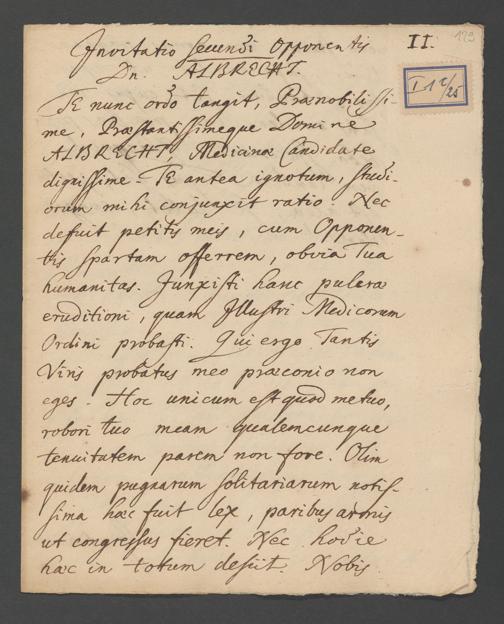 Invitatio Secundi Opponentis
II.
129
Dn. ALBRECHT.
I 1 2/25
TE nunc ordo tangit, Prænobilissi-
me, Præstantissimeque Domine
ALBRECHT, Medicinæ Candidate
dignissime. TE antea ignotum, studi-
orum mihi conjunxit ratio. Nec
defuit petitis meis, cum Opponen-
tis spartam offerrem, obvia Tua
humanitas. Junxisti hanc pulcræ
eruditioni, quam Illustri Medicorum
Ordini probasti. Qui ergo Tantis
Viris probatus meo præconio non
eges. Hoc unicum est quod metuo,
robori tuo meam qualemcunque
tenuitatem parem non fore. Olim
quidem pugnarum solitariarum notis-
sima hæc fuit lex, paribus armis
ut congressus fieret. Nec hodie
hæc in totum desiit. Nobis